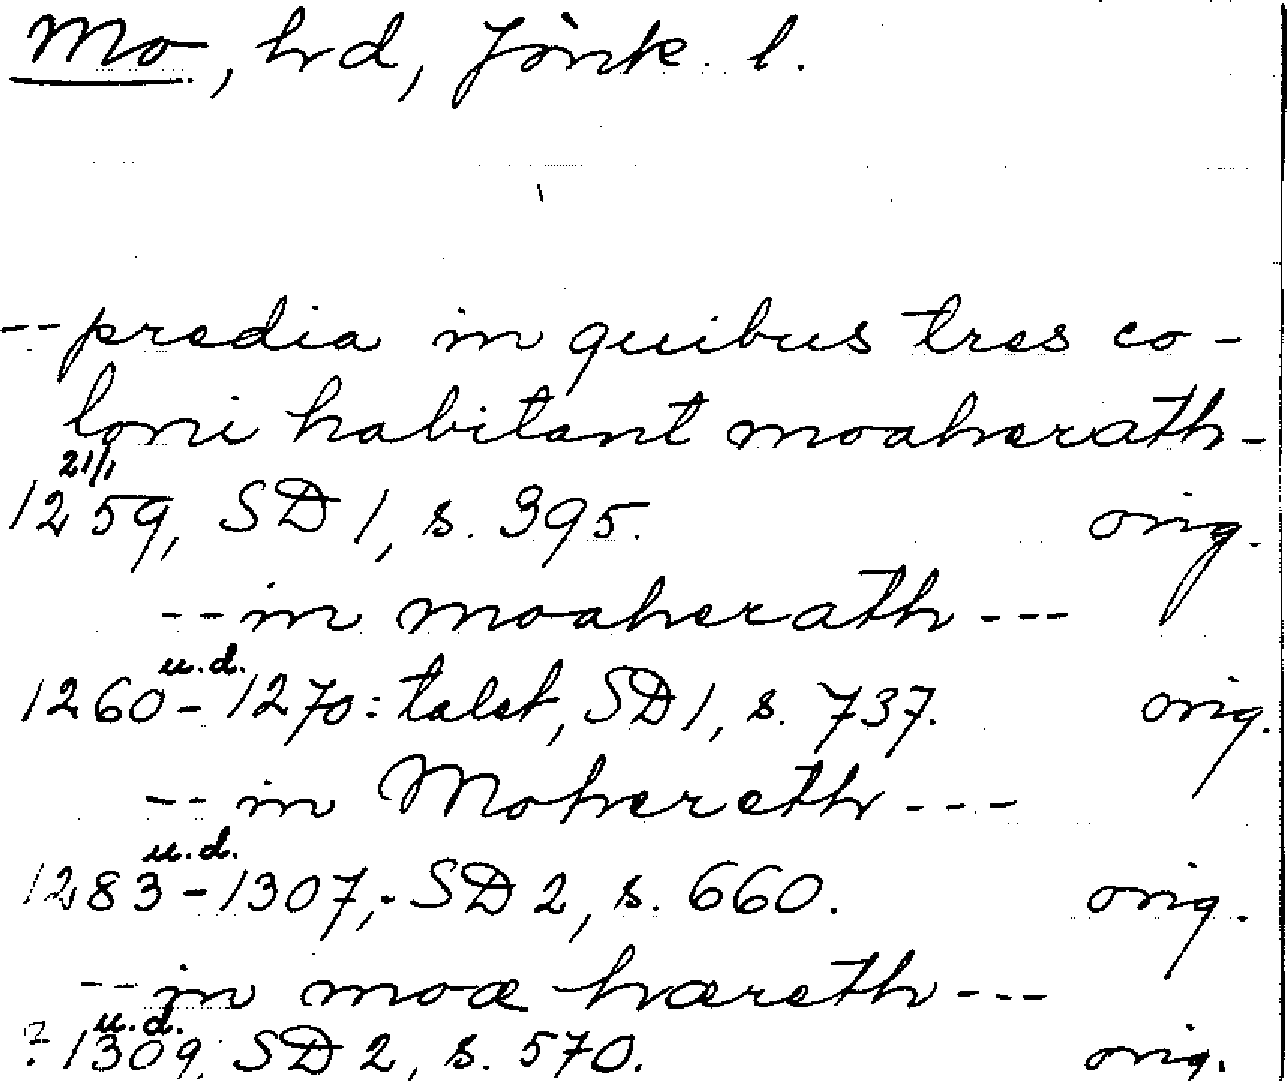 Mo, hd, Jönk. l.
-- predia in quibus tres co-
loni habitant moaherath-
21/1
1259, SD 1, s. 395. orig.
-- in moaherath ---
u.d.
1260-1270: talet, SD 1, s. 737. orig.
-- in Mohereth ---
u.d.
1283-1307,- SD 2, s. 660. orig.
-- in moæ hæreth ---
u.d.
? 1309, SD 2, s. 570. orig.